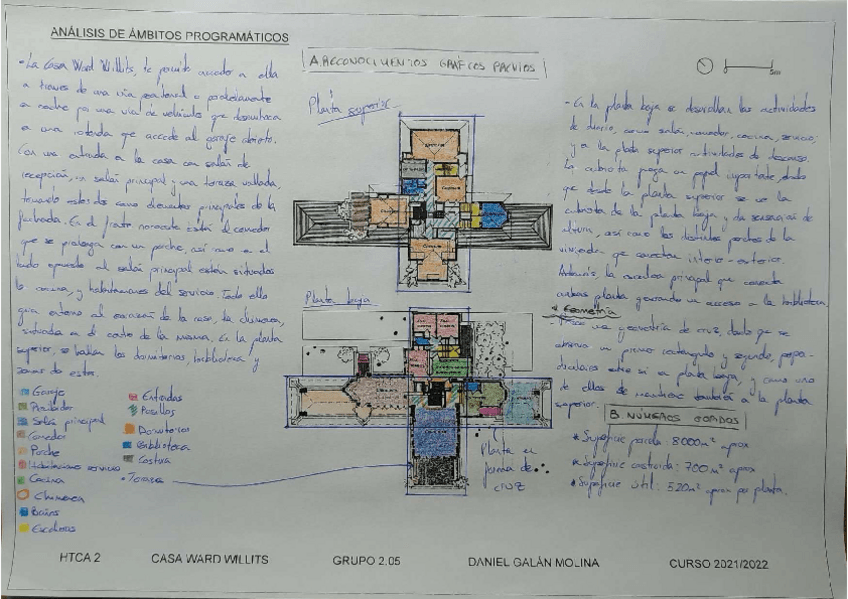 ANÁLISIS DE ÁMBITOS PROGRAMÁTICOS
A RECONOCIMIENTOS GRÁFICOS PREVIOS
• La Casa Ward Willits, te permite acceder a ella
a traves de una via peatonal o
a coche por una via de vehiculos que desemboca
a una rotonda que accede al garaje abierto.
Con una entrada a la casa con salón de
recepción, un salón principal y una terraza vallada,
tomando estas dos como elementos principales de la
fachada. En el frente noroeste están el comedor
que se prolonga con un porche, así como en el
lado opuesto al salón principal están situados
la cocina, y habitaciones del servicio. Todo ello
gira entorno al corazón de la casa, la chimenea,
situada en el centro de la misma. En la planta
superior, se hallan los dormitorios, biblioteca y
Garaje
Recibidor
Salón principal
Comedor
Porche
Habitaciones servicio
Cocina
Chimenea
Baños
Escaleras
Entradas
Pasillos
Dormitorios
Biblioteca
Costura
• Terraza
Planta superior
Planta baja
Planta en
forma de
cruz
5m
- En la planta baja se desarrollan las actividades
de diario, como salón, comedor, cocina, servicio;
y en la planta superior actividades de descanso.
La cubierta juega un papel importante, dado
que desde la planta superior se ve la
cubierta de la planta baja y da sensación de
altura, así como los distintos porches de la
vivienda que conectan interior-exterior.
Además, la escalera principal que conecta
ambas plantas generando un acceso a la biblioteca.
• Geometría
una geometría de cruz, dado que se
observa un primer rectángulo y segundo, perpen-
diculares entre si en planta baja, y como uno
de ellos se mantiene también en la planta
superior.
B NÚMEROS
* Superficie parcela 8000m² aprox
* Superficie construida: 700m² aprox
* Superficie útil: 520m² aprox por planta.
HTCA 2 CASA WARD WILLITS GRUPO 2.05 DANIEL GALÁN MOLINA CURSO 2021/2022